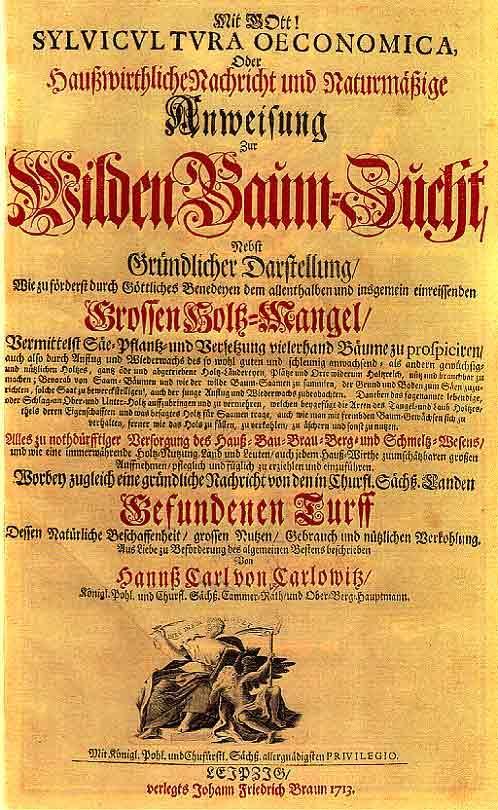 Mit GOtt!
SYLVICVLTVRA OECONOMICA,
Oder
Haußwirthliche Nachricht und Naturmäßige
Anweisung
Zur
Wilden Baum-Zucht/
Nebst
Gründlicher Darstellung/
Wie zu förderst durch Göttliches Benedeyen dem allenthalben und insgemein einreissenden
Grossen Holtz-Mangel/
Vermittelst Säe-Pflantz- und Versetzung vielerhand Bäume zu prospiciren/
auch also durch Anflug und Wiederwachs des so wohl guten und schleunig anwachsend- als andern gewüchsig-
und nützlichen Holtzes, gantz öde und abgetriebene Holtz-Ländereyen, Plätze und Orte widerum Holtzreich, nütz und brauchbar zu
machen; Benebenst von Saam-Bäumen und wie der wilde Baum-Saamen zu sammlen, der Grund und Boden zum Säen zuzu-
richten, solche Saat zu bewerckstelligen, auch der junge Anflug und Wiederwachs zu beobachten. Daneben das sogenannte lebendige,
oder Schlag an Ober- und Unter-Holtz auffzubringen und zu vermehren, welchen beygefügt die Arten des Tangel- und Laub-Holtzes,
theils deren Eigenschafften und was besagtes Holtz für Saamen trage, auch wie man mit frembden Baum-Gewächsen sich zu
verhalten, ferner wie das Holtz zu fällen, zu verkohlen, zu äschern und sonst zu nutzen.
Alles zu nothdürfftiger Versorgung des Hauß-Bau-Brau-Berg- und Schmeltz-Wesens/
und wie eine immerwährende Holtz-Nutzung Land und Leuten/ auch jedem Hauß-Wirthe zu unschätzbaren großen
Auffnehmen/ pfleglich und füglich zu erziehlen und einzuführen.
Worbey zugleich eine gründliche Nachricht von den in Churfl. Sächß. Landen
Gefundenen Turff
Dessen Natürliche Beschaffenheit/ grossen Nutzen/ Gebrauch und nützlichen Verkohlung.
Aus Liebe zu Beförderung des algemeinen Bestens beschrieben
Von
Hannß Carl von Carlowitz/
Königl. Pohl. und Churfl. Sächß. Cammer-Rath/ und Ober-Berg-Hauptmann.
Mit Königl. Pohl. und Chufürstl. Sächß. allergnädigsten PRIVILEGIO.
LEIPZIG/
verlegts Johann Friedrich Braun 1713.